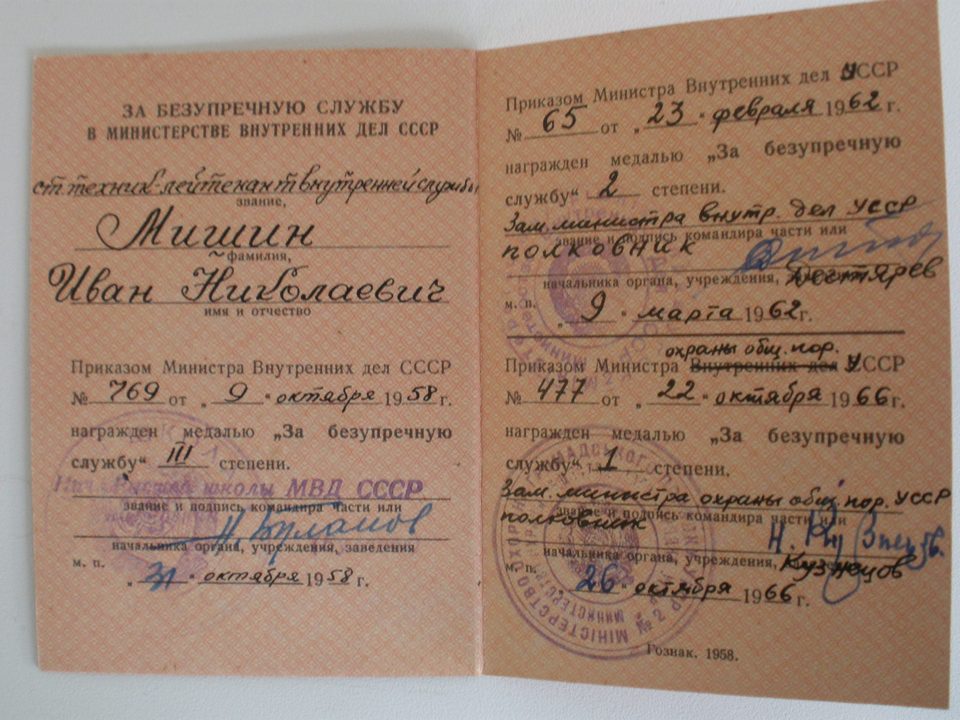 ЗА БЕЗУПРЕЧНУЮ СЛУЖБУ
В МИНИСТЕРСТВЕ ВНУТРЕННИХ ДЕЛ СССР
ст. техник-лейтенант внутренней службы
звание,
Мишин
фамилия,
Иван Николаевич
имя и отчество
Приказом Министра Внутренних дел СССР
№ 769 от „ 9 “ октября 1958 г.
награжден медалью „За безупречную
службу“ III степени.
школы МВД СССР
звание и подпись командира части или
начальника органа, учреждения, заведения
м. п.
„ 31 “ октября 1958 г.
Приказом Министра Внутренних дел УССР
№ 65 от „ 23 “ февраля 1962 г.
награжден медалью „За безупречную
службу“ 2 степени.
Зам. министра внутр. дел УССР
звание и подпись командира части или
полковник
начальника органа, учреждения,
м. п.
„ 9 “ марта 1962 г.
охраны общ. пор.
Приказом Министра Внутренних дел УССР
№ 477 от „ 22 “ октября 1966 г.
награжден медалью „За безупречную
службу“ 1 степени.
Зам. министра охраны общ. пор. УССР
звание и подпись командира части или
полковник
начальника органа, учреждения, Кузнецов
м. п.
„ 26 “ октября 1966 г.
Гознак. 1958.